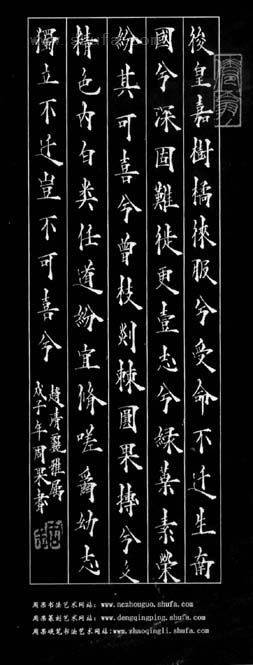 後皇嘉樹橘徠服兮受命不迁生南
國兮深固難徙更壹志兮緑葉素榮
紛其可喜兮曾枝剡棘圓果摶兮文
精色内白类任道紛宜脩嗟爾幼志
獨立不迁豈不可喜兮
清麗雅屬
戊子年周果書
周果书法艺术网站：www.nczhouguo.shufa.com
周果篆刻艺术网站：www.dengqingping.shufa.com
周果硬笔书法艺术网站：www.shaoqingli.shufa.com